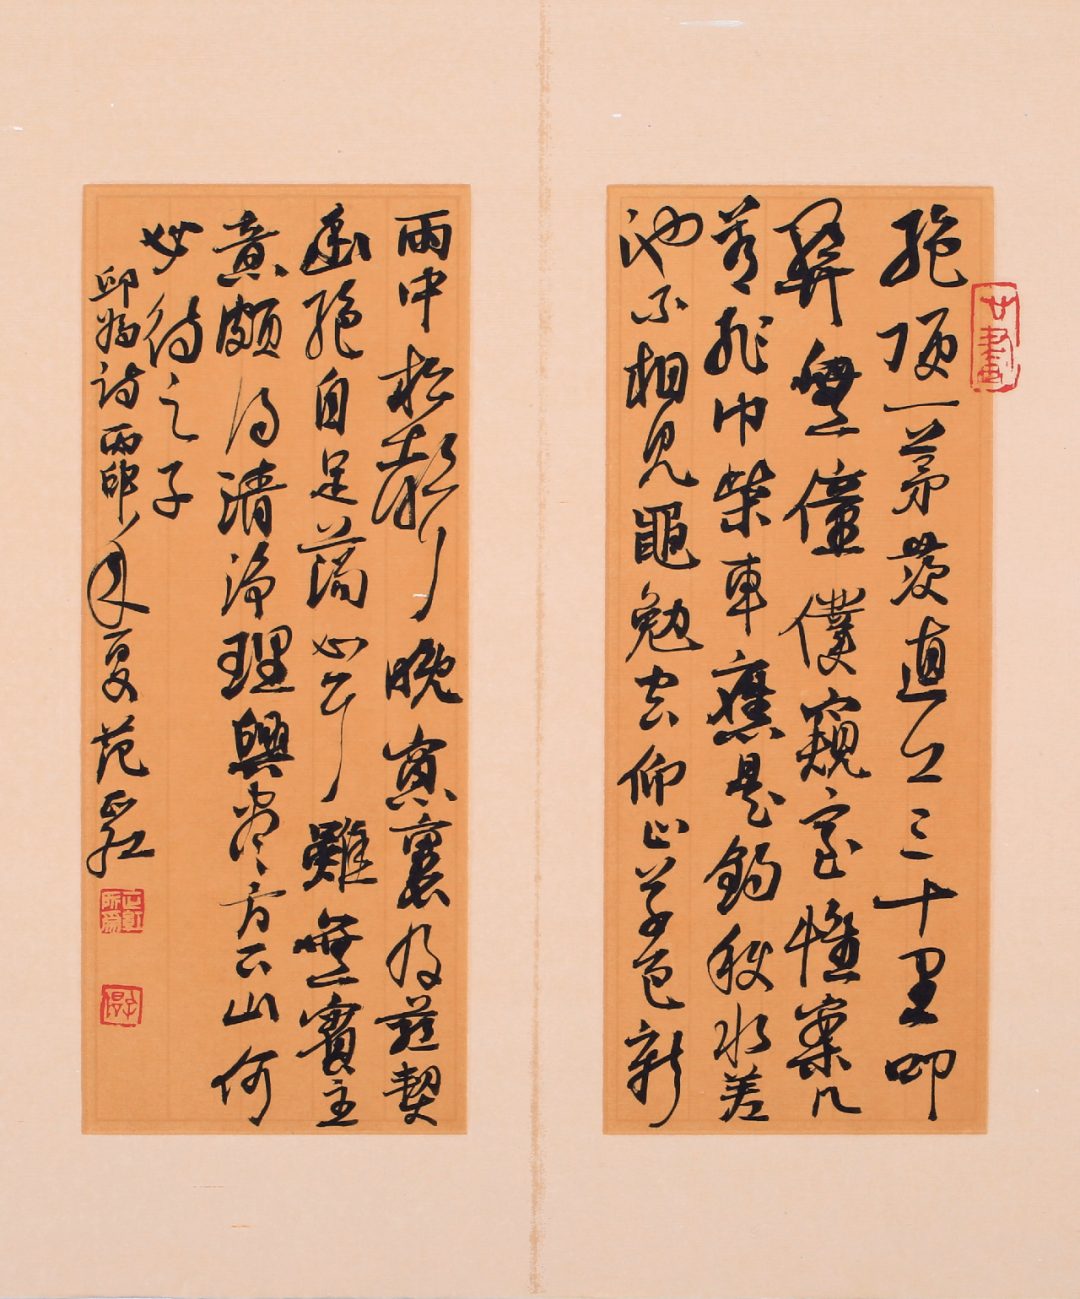 絕頂一茅茨直上三十里叩
關無僮僕窺室惟案几
若非巾柴車應是釣秋水差
池不相見黽勉空仰止草色新
雨中松聲晚窗裏及茲契
幽絕自足蕩心耳雖無賓主
意頗得清淨理興盡方下山何
必待之子
邱為詩丙申年夏范正紅
正紅所為